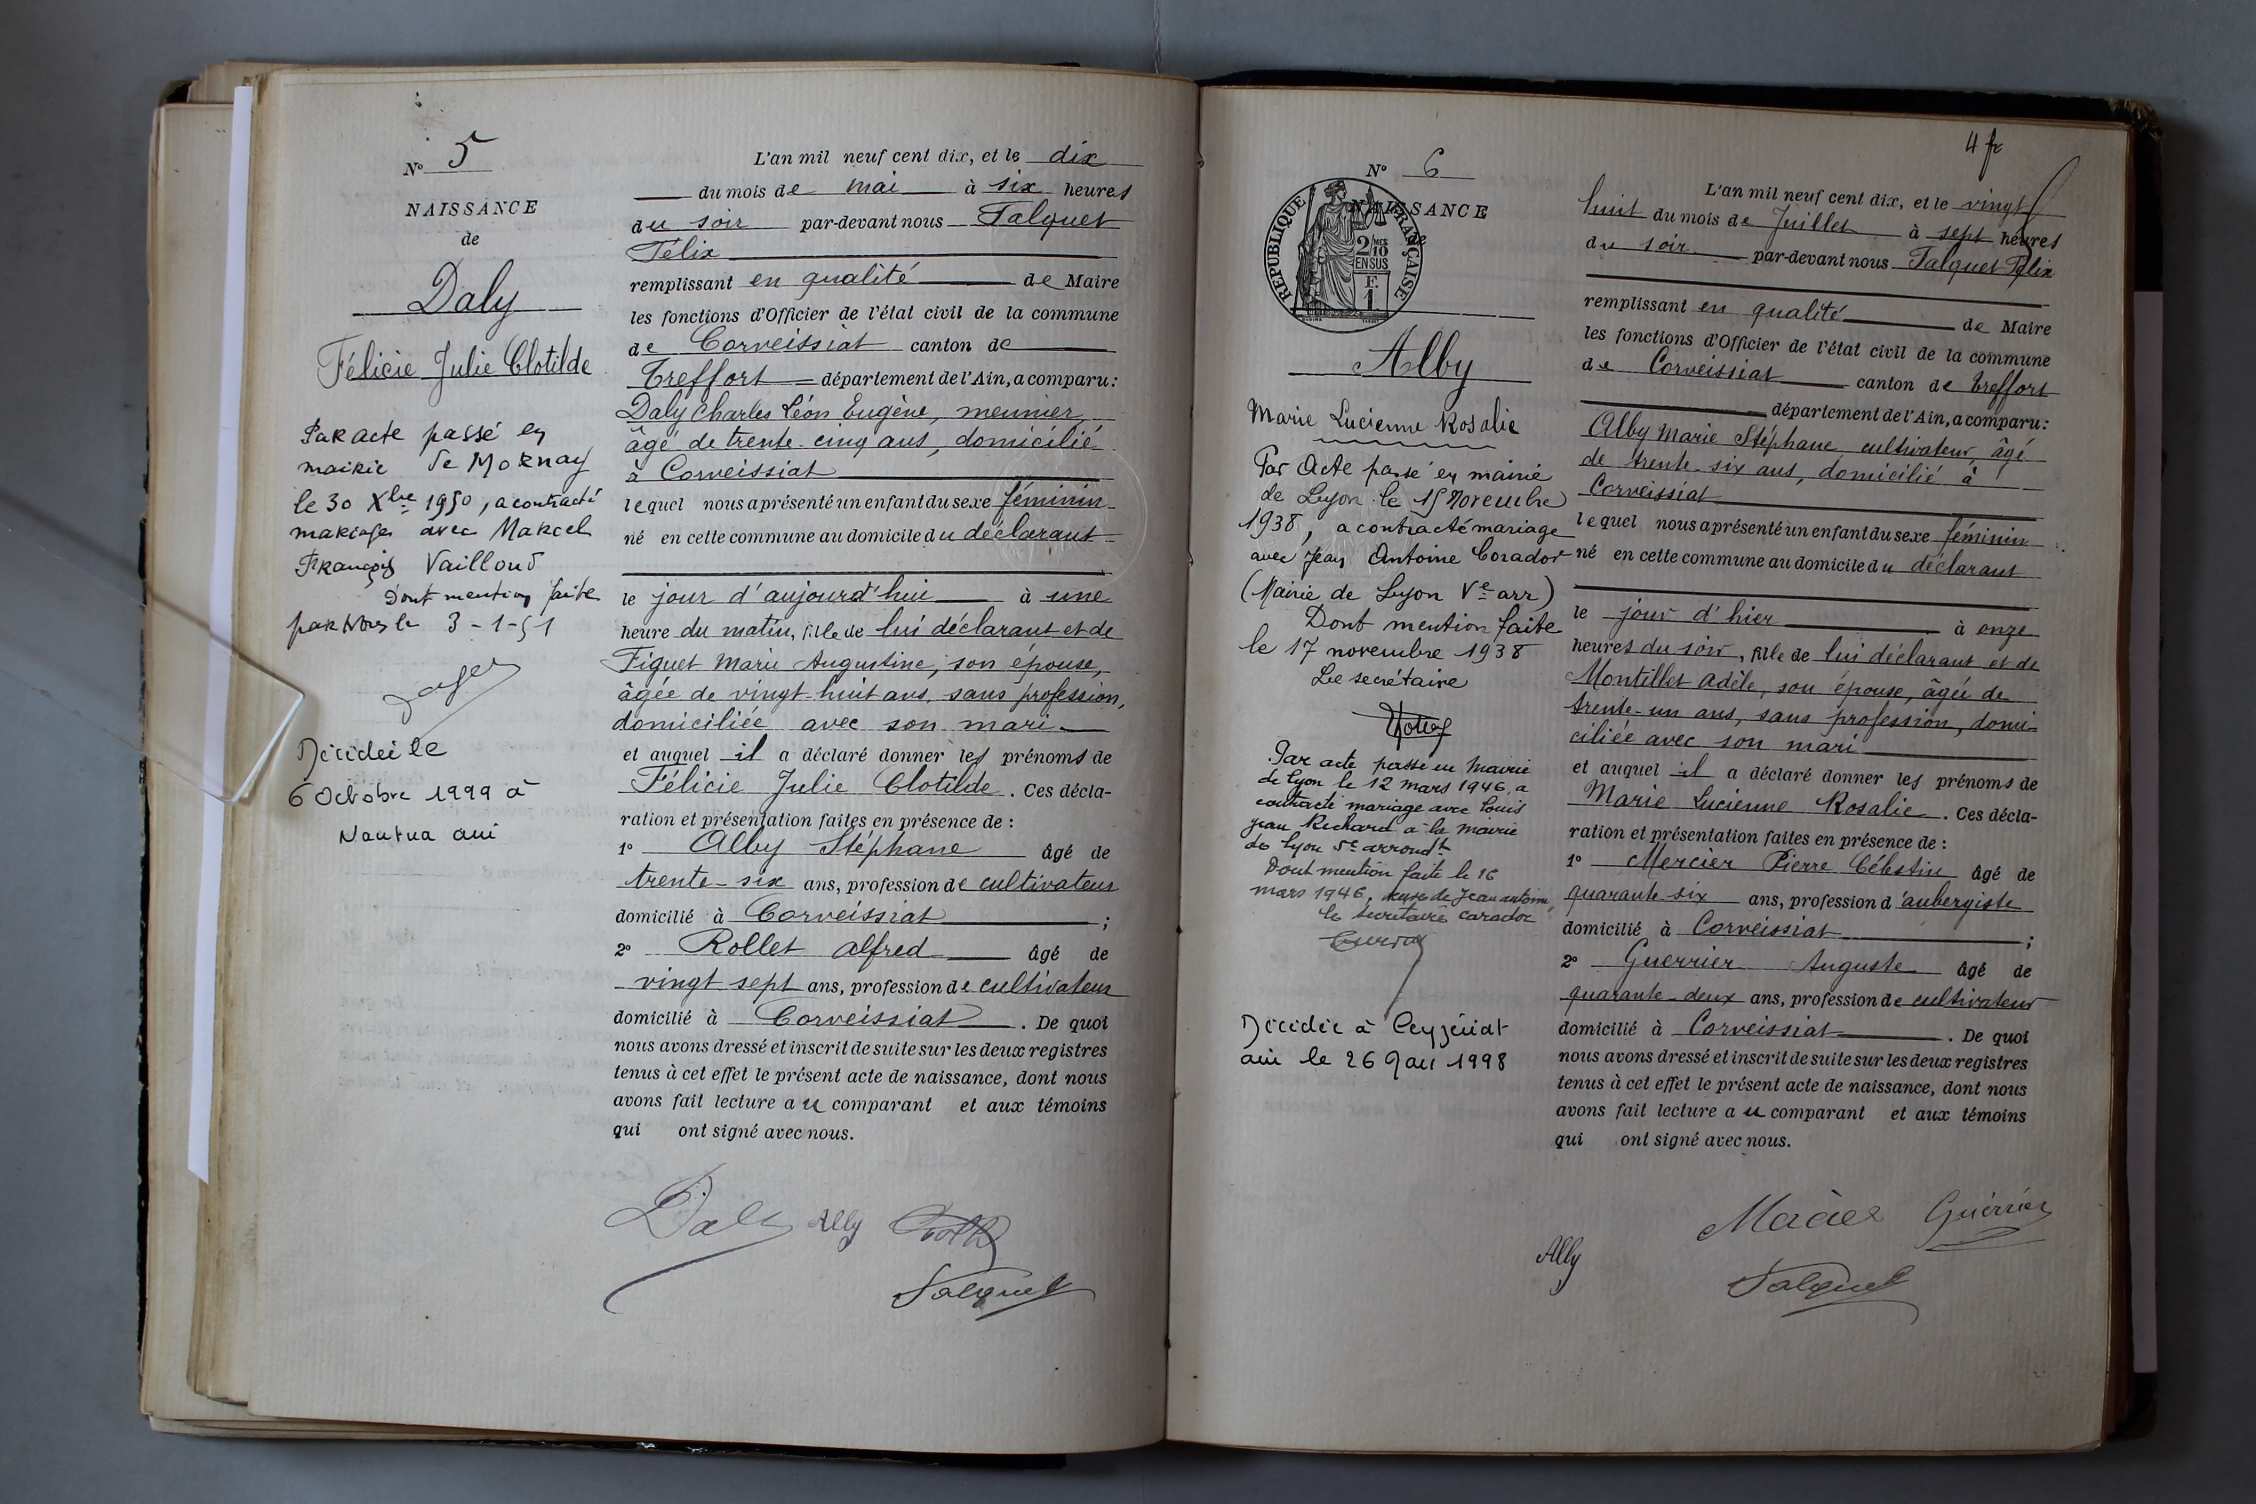 N° 5
NAISSANCE
de
Daly
Félicie Julie Clotilde
Par acte passé en
mairie de Mornay
le 30 Xbre 1950, a contracté
mariage avec Marcel
François Vailloud
Dont mention faite
par Nous le 3-1-51
Décédée le
6 Octobre 1999 à
Nantua Ain
L'an mil neuf cent dix, et le dix
du mois de mai à six heures
du soir par-devant nous Falquet
Félix
remplissant en qualité de Maire
les fonctions d'Officier de l'état civil de la commune
de Corveissiat canton de
Treffort département de l'Ain, a comparu:
Daly Charles Léon Eugène, meunier
âgé de trente-cinq ans, domicilié
à Corveissiat
lequel nous a présenté un enfant du sexe féminin
né en cette commune au domicile du déclarant
le jour d'aujourd'hui à une
heure du matin, fille de lui déclarant et de
Figuet Marie Augustine, son épouse,
âgée de vingt-huit ans, sans profession,
domiciliée avec son mari
et auquel il a déclaré donner les prénoms de
Félicie Julie Clotilde. Ces décla-
ration et présentation faites en présence de :
1° Alby Stéphane âgé de
trente-six ans, profession de cultivateur
domicilié à Corveissiat ;
2° Rollet Alfred âgé de
vingt sept ans, profession de cultivateur
domicilié à Corveissiat. De quoi
nous avons dressé et inscrit de suite sur les deux registres
tenus à cet effet le présent acte de naissance, dont nous
avons fait lecture au comparant et aux témoins
qui ont signé avec nous.
Daly Alby
Falquet
4 fr
N° 6
NAISSANCE
de
RÉPUBLIQUE FRANÇAISE
2/10 MES
EN SUS
F.
1
Alby
Marie Lucienne Rosalie
Par Acte passé en mairie
de Lyon le 15 Novembre
1938, a contracté mariage
avec Jean Antoine Corador
(Mairie de Lyon Ve arr)
Dont mention faite
le 17 novembre 1938
Le secrétaire
Par acte passé en Mairie
de Lyon le 12 mars 1946, a
contracté mariage avec Louis
Jean Richard à la Mairie
de Lyon 5e arrondt
Dont mention faite le 16
mars 1946, veuve de Jean antoine
le secrétaire carador
Décédée à Ceyzériat
Ain le 26 Jan 1998
L'an mil neuf cent dix, et le vingt
huit du mois de Juillet à sept heures
du soir par-devant nous Falquet Félix
remplissant en qualité de Maire
les fonctions d'Officier de l'état civil de la commune
de Corveissiat canton de Treffort
département de l'Ain, a comparu:
Alby Marie Stéphane cultivateur, âgé
de trente-six ans, domicilié à
Corveissiat
lequel nous a présenté un enfant du sexe féminin
né en cette commune au domicile du déclarant
le jour d'hier à onze
heures du soir, fille de lui déclarant et de
Montillet Adèle, son épouse, âgée de
trente-un ans, sans profession, domi
ciliée avec son mari
et auquel il a déclaré donner les prénoms de
Marie Lucienne Rosalie. Ces décla-
ration et présentation faites en présence de :
1° Mercier Pierre Célestin âgé de
quarante-six ans, profession d'aubergiste
domicilié à Corveissiat ;
2° Guerrier Auguste âgé de
quarante-deux ans, profession de cultivateur
domicilié à Corveissiat. De quoi
nous avons dressé et inscrit de suite sur les deux registres
tenus à cet effet le présent acte de naissance, dont nous
avons fait lecture au comparant et aux témoins
qui ont signé avec nous.
Mercier Guerrier
Alby
Falquet